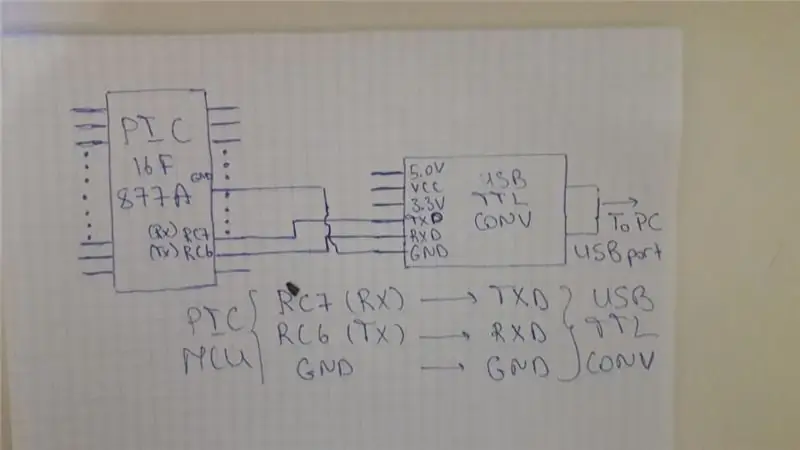 PIC
16F
877A
GND
(RX) RC7
(TX) RC6
5.0V
VCC
3.3V
TXD
RXD
GND
USB
TTL
CONV
To PC
USB port
PIC MCU { RC7 (RX) → TXD } USB TTL CONV
RC6 (TX) → RXD
GND → GND